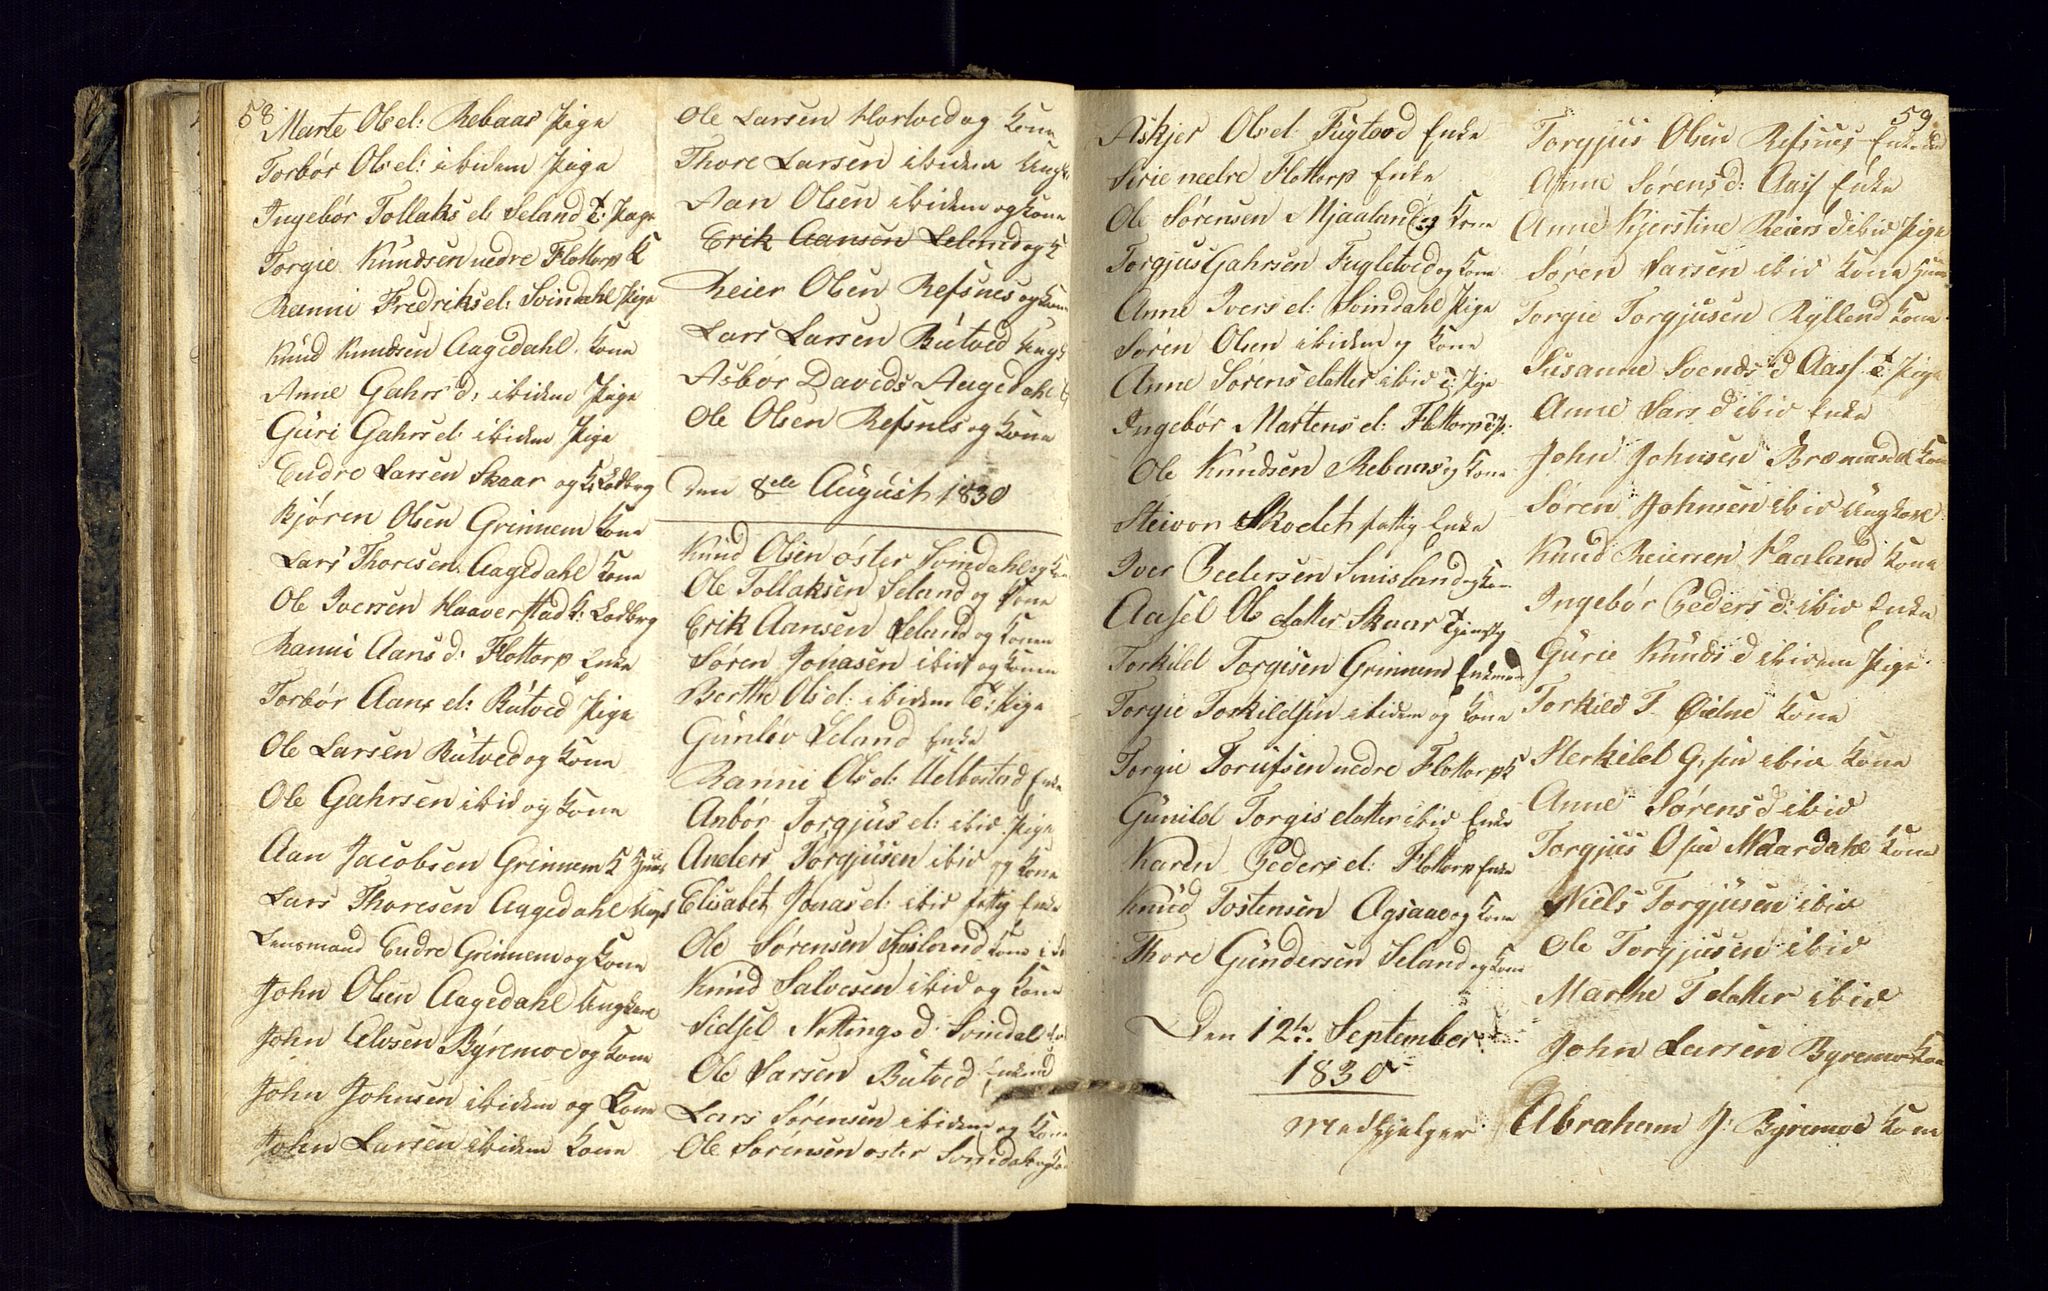 58
Marte Olsd: Rebaas Pige
Torbör Olsd: ibidem Pige
Ingebör Tollaksd: Seland T: Pige
Torgie Knudsen nedre Flottorp K
Ranni Fredriksd: Svindahl Pige
Knud Knudsen Aagedahl. Kona
Anne Gahrsd: ibidem Pige
Guri Gahrsd: ibidem Pige
Endre Larsen Skaar og K: Lodberg
Björen Olsen Grinnem Kona
Lars Thoresen Aagedahl Kona
Ole Iversen Haaverstad K: Lodberg
Ranni Aansd: Flottorp Enke
Torbör Aansd: Butved Pige
Ole Larsen Butved og Kona
Ole Gahrsen ibid og Kona
Aan Jacobsen Grinnem K
Lars Thoresen Aagedahl Ungk
Lensmand Endre Grinnem og Kona
John Olsen Aagedahl Ungkarl
John Olsen Byremoe og Kona
John Johnsen ibidem og Kone
John Larsen ibidem Kona
Ole Larsen Hortved og Kona
Thore Larsen ibidem Ungk
Aan Olsen ibidem og Kona
Erik Aansen Leland og K
Reier Olsen Refsnes og Kona
Lars Larsen Butved Ungk
Asbör Davids Aagedahl
Ole Olsen Refsnes og Kona
Den 8de August 1830
Knud Olsen öster Svindahl og Kona
Ole Tollaksen Seland og Kona
Erik Aansen Leland og Konen
Sören Jonasen ibid og Konen
Berthe Olsd: ibidem T: Pige
Gunlöv Leland Enke
Ranni Olsd: Uelbostad Enke
Anbör Torgjusd: ibid Pige
Anders Torgjusen ibid og Kona
Elisabet Jonasd: ibid fattig Enke
Ole Sörensen Kona
Knud Salvesen ibid og Kona
Sidsel Nottingsd: Svindal
Ole Larsen Butved Enkemd
Lars Sörensen ibidem og Kona
Ole Sörensen öster Svindahl og Kona
59
Askjer Olsd: Fugtvod Enke
Sirie nedre Flottorp Enke
Ole Sörensen Mjaaland og Kona
Torgjus Gahrsen Fugletved og Kona
Anne Iversd: Svindahl Pige
Sören Olsen ibidem og Kona
Anne Sörensdatter ibid T: Pige
Ingebör Martensd: Flottorp T: P:
Ole Knudsen Rebaas og Kona
Steivor Skodet fattig Enke
Iver Pedersen og Kone
Aasel Olsdatter Skaar
Torkild Torgisen Grinnem Enkemand
Torgie Torkildsen ibidem og Kona
Torgie nedre Flottorp K
Gunild Torgisdatter ibid Enke
Karen Pedersd: Flottorp Enke
Knud Tostensen Agsaae og Kona
Thore Gundersen Seland og Kone
Den 12te September
1830
Medhjelper
Torgjus Olsen Refsnes Enkemd
Anne Sörensd: Aasf Enke
Anne Kjerstine Reiersd ibid Pige
Sören Larsen ibid Kona
Torgie Torgjusen Rylland Kona
Susanne Svendsd Aasf T: Pige
Anne Larsd ibid Enke
John Johnsen Kona
Sören Johnsen ibid Ungkarl
Knud Reiersen Haaland Kona
Ingebör Pedersd: ibid Enke
Gurie Knudsd ibidem Pige
Torkild T. Öidne Kona
Sterkild G,sen ibid Kona
Anne Sörensd ibid
Torgjus Osen Maardahl Kona
Niels Torgjusen ibid
Ole Torgjusen ibid
Marthe T datter ibid
John Larsen Byremo Kona
Abraham J: Byremoe Kona